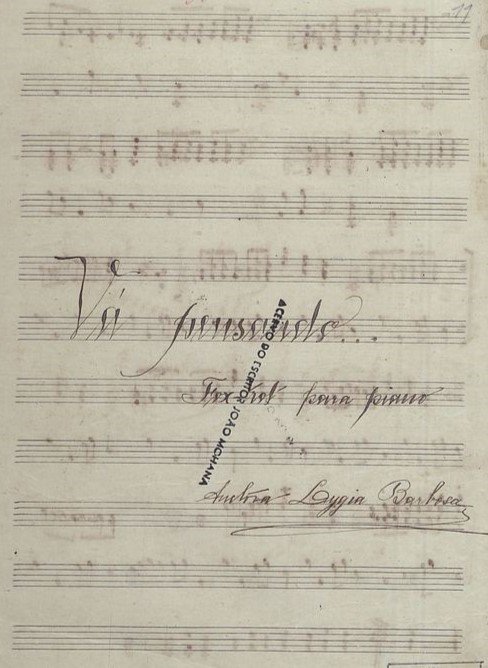 11
Vá pensando...
Fox-trot para piano
ACERVO DO ESCRITOR JOÃO MOHANA
Auctora Lygia Barbosa